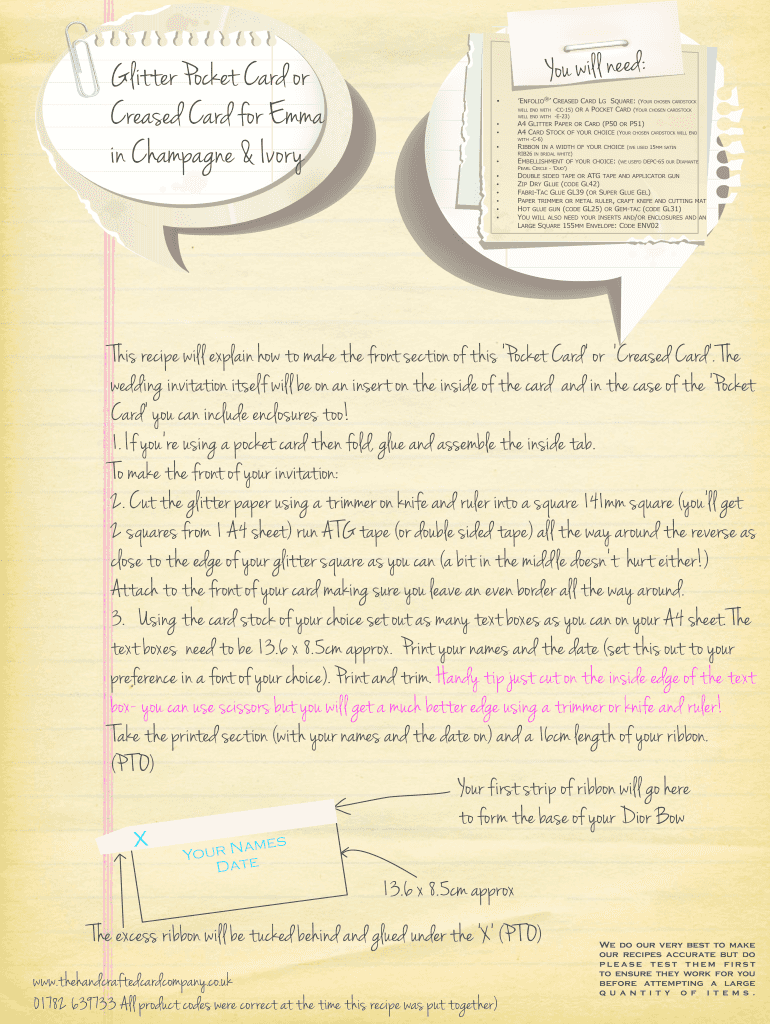 Glitter Pocket Card or
Creased Card for Emma
in Champagne & Ivory
You will need:
• 'Enfolio®' Creased Card Lg Square: (your chosen cardstock
will end with -CC-15) or a Pocket Card (your chosen cardstock
will end with -E-23)
• A4 Glitter Paper or Card (P50 or P51)
• A4 Card Stock of your choice (your chosen cardstock will end
with -C-6)
• Ribbon in a width of your choice (we used 15mm satin
RIB26 in bridal white)
• Embellishment of your choice: (we used DEPC-65 our Diamante
Pearl Circle - 'Duet')
• Double sided tape or ATG tape and applicator gun
• Zip Dry Glue (code GL42)
• Fabri-Tac Glue GL39 (or Super Glue Gel)
• Paper trimmer or metal ruler, craft knife and cutting mat
• Hot glue gun (code GL25) or Gem-tac (code GL31)
• You will also need your inserts and/or enclosures and an
Large Square 155mm Envelope: Code ENV02
This recipe will explain how to make the front section of this 'Pocket Card' or 'Creased Card'. The
wedding invitation itself will be on an insert on the inside of the card and in the case of the 'Pocket
Card' you can include enclosures too!
1. If you're using a pocket card then fold, glue and assemble the inside tab.
To make the front of your invitation:
2. Cut the glitter paper using a trimmer on knife and ruler into a square 141mm square (you'll get
2 squares from 1 A4 sheet) run ATG tape (or double sided tape) all the way around the reverse as
close to the edge of your glitter square as you can (a bit in the middle doesn't hurt either!)
Attach to the front of your card making sure you leave an even border all the way around.
3. Using the card stock of your choice set out as many text boxes as you can on your A4 sheet. The
text boxes need to be 13.6 x 8.5cm approx. Print your names and the date (set this out to your
preference in a font of your choice). Print and trim. Handy tip just cut on the inside edge of the text
box- you can use scissors but you will get a much better edge using a trimmer or knife and ruler!
Take the printed section (with your names and the date on) and a 16cm length of your ribbon.
(PTO)
Your first strip of ribbon will go here
to form the base of your Dior Bow
X
Your Names
Date
13.6 x 8.5cm approx
The excess ribbon will be tucked behind and glued under the 'X' (PTO)
We do our very best to make
our recipes accurate but do
please test them first
to ensure they work for you
before attempting a large
quantity of items.
www.thehandcraftedcardcompany.co.uk
01782 639733 All product codes were correct at the time this recipe was put together)